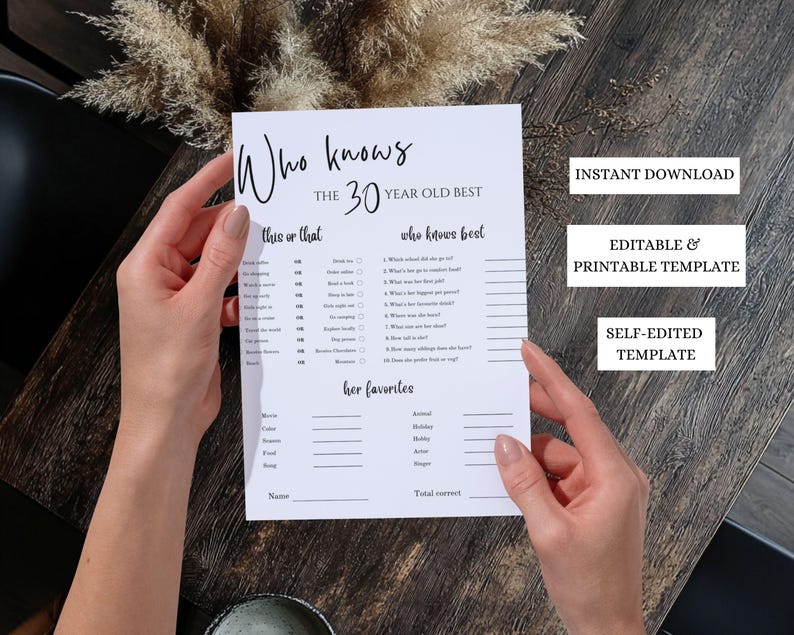 Who knows
THE 30 YEAR OLD BEST
this or that
Drink coffee OR Drink tea
Go shopping OR Order online
Watch a movie OR Read a book
Get up early OR Sleep in late
Girls night in OR Girls night out
Go on a cruise OR Go camping
Travel the world OR Explore locally
Cat person OR Dog person
Receive flowers OR Receive Chocolates
Beach OR Mountain
who knows best
1. Which school did she go to?
2. What's her go to comfort food?
3. What was her first job?
4. What's her biggest pet peeve?
5. What's her favourite drink?
6. Where was she born?
7. What size are her shoe?
8. How tall is she?
9. How many siblings does she have?
10. Does she prefer fruit or veg?
her favorites
Movie
Color
Season
Food
Song
Animal
Holiday
Hobby
Actor
Singer
Name
Total correct
INSTANT DOWNLOAD
EDITABLE &
PRINTABLE TEMPLATE
SELF-EDITED
TEMPLATE